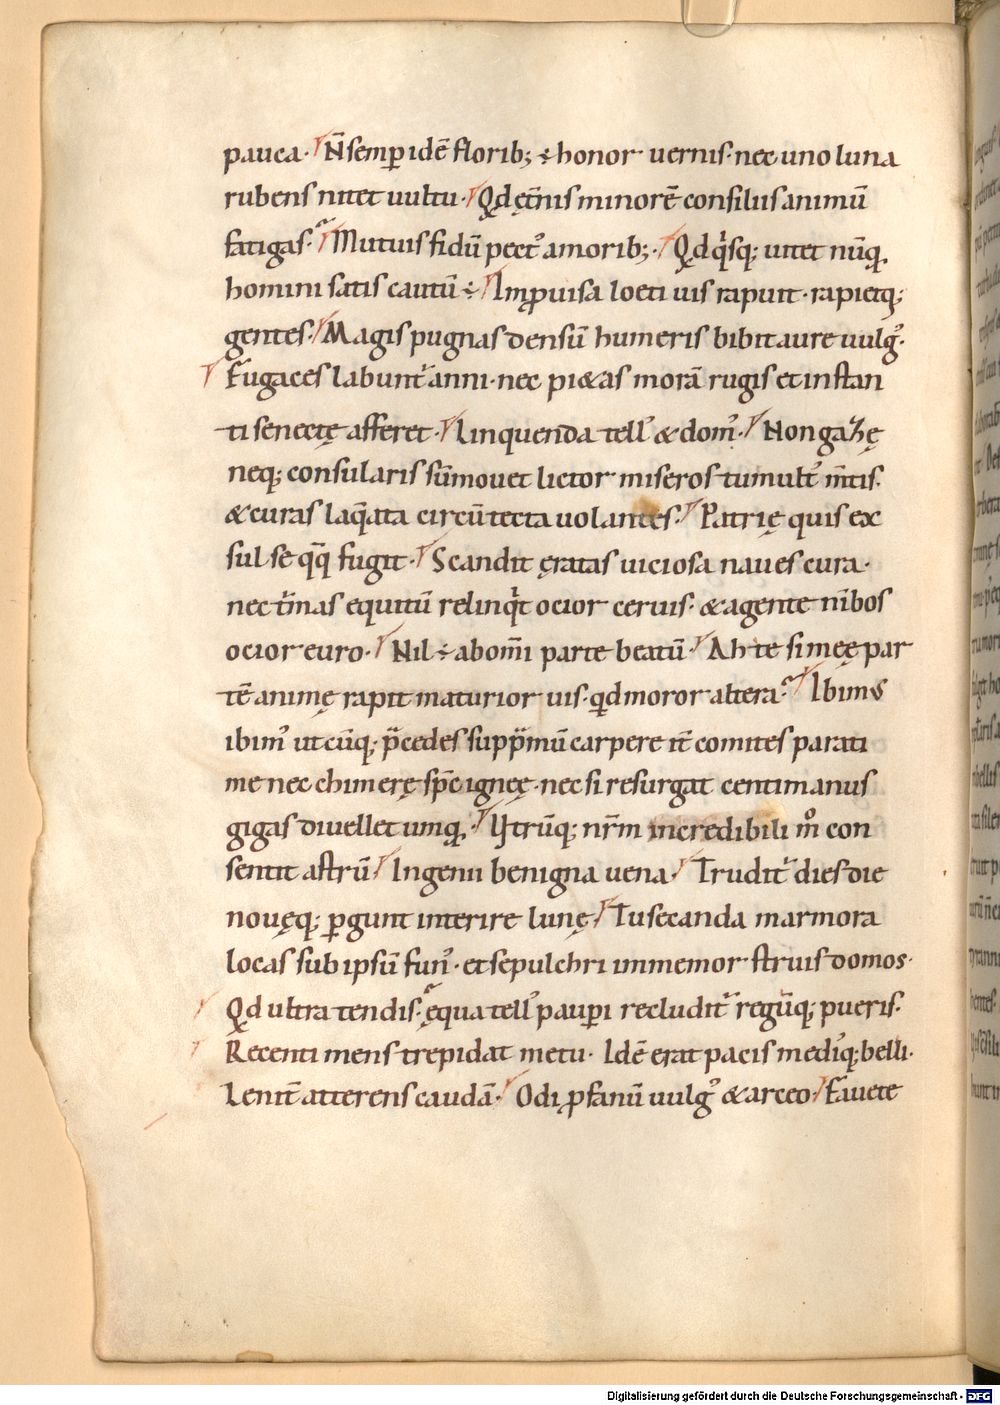 pauca· N̄ semp̱ idē florib; ÷ honor uernis· nec uno luna
rubens nitet uultu· Qd ęt̄nis minorē consiliis animū
fatigas· Mutuis fidū pect᾿ amorib;· Qd qͥsq; uitet nūq̄
homini satis cautū ÷ Imp̱uisa loeti uis rapuit· rapietq;
gentes· Magis pugnas densū humeris bibit aure uulg᾿·
Fugaces labunt᾿ anni· nec pi&as morā rugis et instan
ti senectę afferet· Linquenda tell᾿ & dom᾿· Non gazę
neq; consularis sūmouet lictor miseros tumult᾿ m̄tis·
& curas laq̄ata circū tecta uolantes· Patrię quis ex
sul se q̄q̄ fugit· Scandit ęratas uiciosa naues cura·
nec t̄mas equitū relinqͥt ocior ceruis· & agente nībos
ocior euro· Nil ÷ ab om̄i parte beatū· Ah te si meę par
tē animę rapit maturior uis· qd moror altera· Ibimus
ibim᾿ utcūq; p̄cedes supp̄mū carpere it̄ comites parati
me nec chimerę sp̄c ignęę· nec si resurgat centimanus
gigas diuellet umq̄· Ut̄rūq; nr̄m incredibili m̊ con
sentit astrū· Ingenii benigna uena· Trudit᾿ dies die
nouęq; p̱gunt interire lunę· Tu secanda marmora
locas sub ipsū fun᾿· et sepulchri immemor struis domos·
Qd ultra tendis· ęqua tell᾿ paup̱i recludit᾿ regūq; pueris·
Recenti mens trepidat metu· Idē erat pacis medi᾿q; belli·
Lenit̄ atterens caudā· Odi p̱fanū uulg᾿ & arceo· Fauete
Digitalisierung gefördert durch die Deutsche Forschungsgemeinschaft - DFG